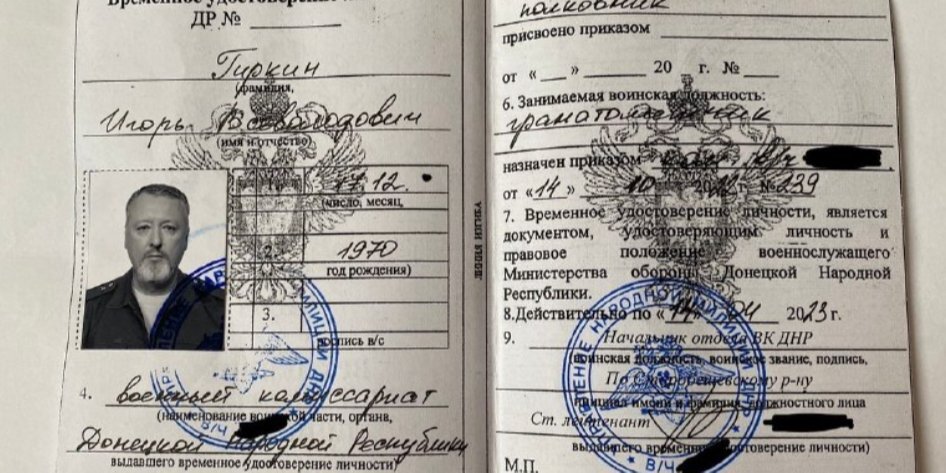 Временное удостоверение
ДР №
Гиркин
(фамилия,
Игорь Всеволодович
(имя и отчество)
1.
17.12.
(число, месяц,
2.
1970
год рождения)
3.
подпись в/с
4. военный комиссариат
(наименование воинской части, органа,
Донецкой Народной Республики
выдавшего временное удостоверение личности)
ЛИНИЯ ИЗГИБА
полковник
присвоено приказом
от « » 20 г. №
6. Занимаемая воинская должность:
гранатометчик
назначен приказом в/ч
от «14» 10 2022 г. № 239
7. Временное удостоверение личности, является
документом, удостоверяющим личность и
правовое положение военнослужащего
Министерства обороны Донецкой Народной
Республики.
8.Действительно по «14» 04 2023 г.
9. Начальник отдела ВК ДНР
воинская должность, воинское звание, подпись,
По Старобешевскому р-ну
инициал имени и фамилия, должностного лица
Ст. лейтенант
выдавшего временное удостоверение личности)
М.П.
НАРОДНОЙ МИЛИЦИИ ДНР
В/Ч
НАРОДНОЙ МИЛИЦИИ ДНР
В/Ч